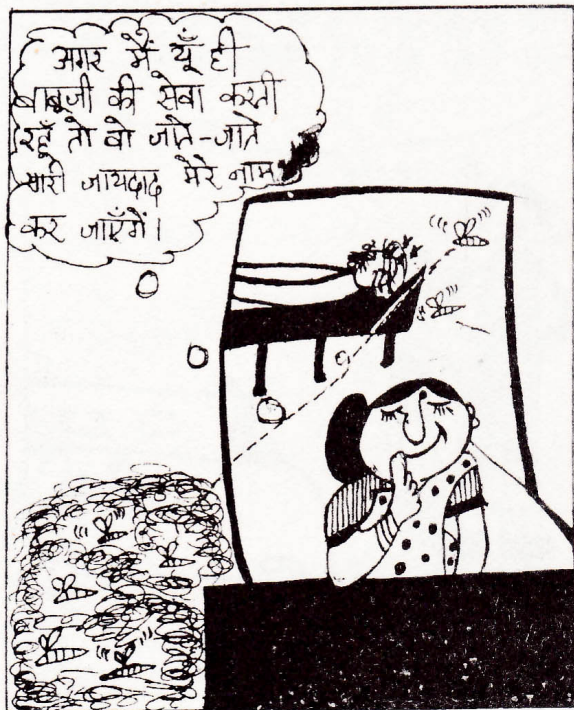 अगर मैं यूँ ही
बाबूजी की सेवा करती
रहूँ तो वो जाते-जाते
सारी जायदाद मेरे नाम
कर जाएँगें।